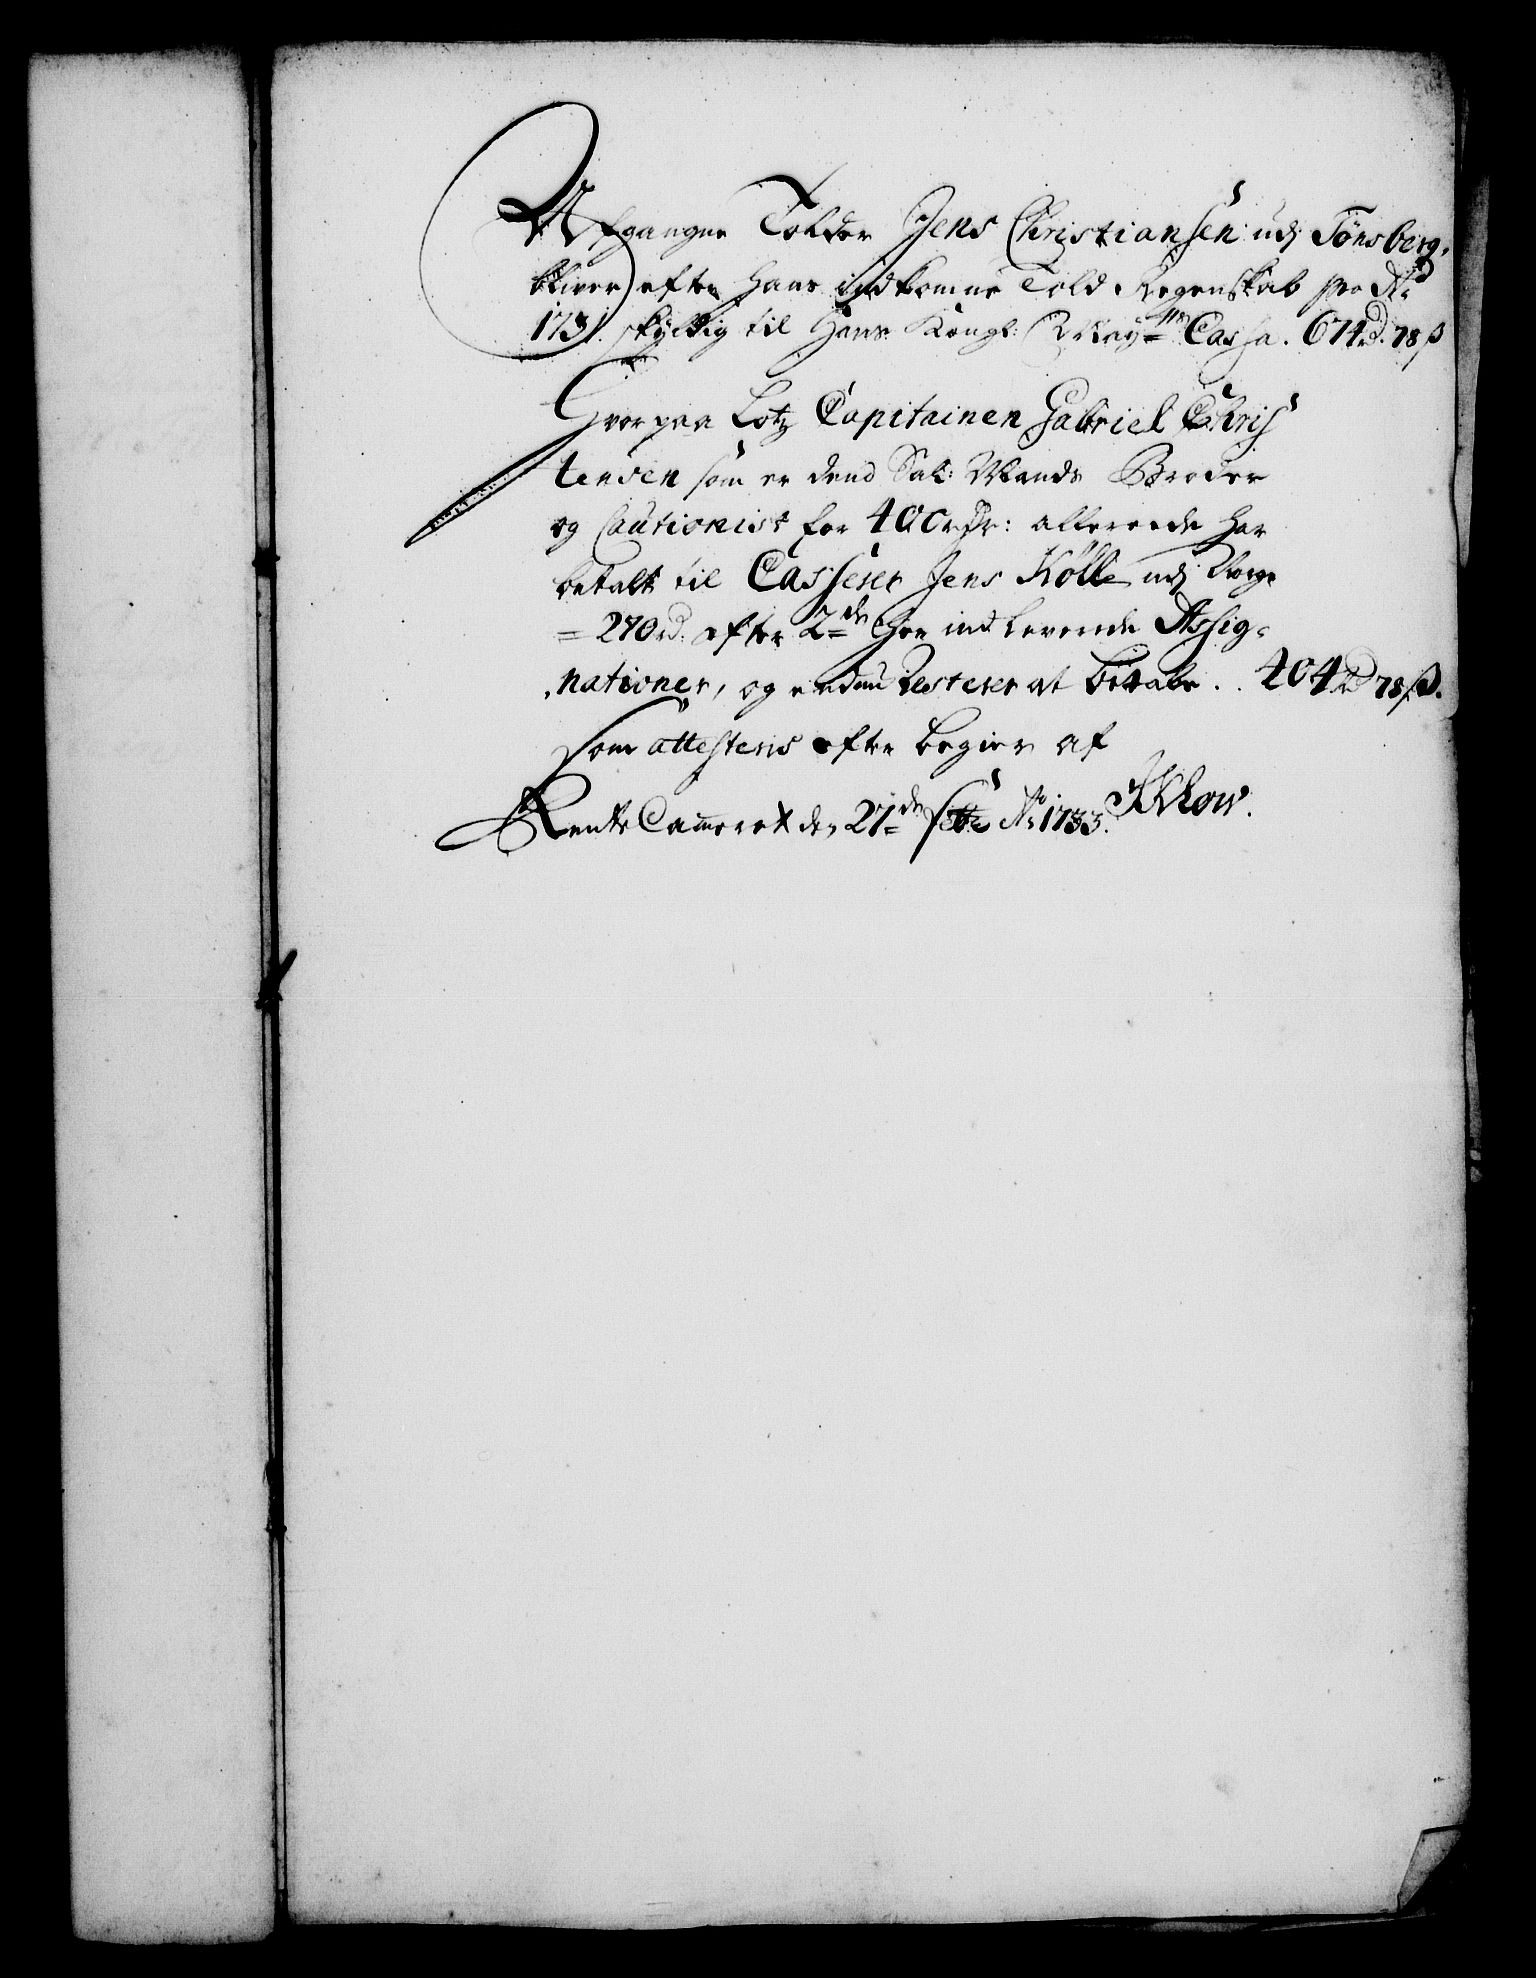 Afgangne Tolder Jens Christiansen udj Tønsberg,
bliver efter hans indkomne Told Regenskab pro Ao
1731. skyldig til Hans Kongl: May:tts Cassa. 674rd. 78ß
Hvorpaa Lotz Capitainen Gabriel Chris
tensen som er dend Sal: Mands Broder
og Cautionist for 400 rdr: allereede har
betalt til Casserer Jens Kølle udj Norge
= 270rd: efter 2de her indleverede Assig=
nationer, og endnu Resterer at betale . . 404rd 78ß.
Som attesteris efter begier af
Rente Cammeret den 27de Ao 1733.